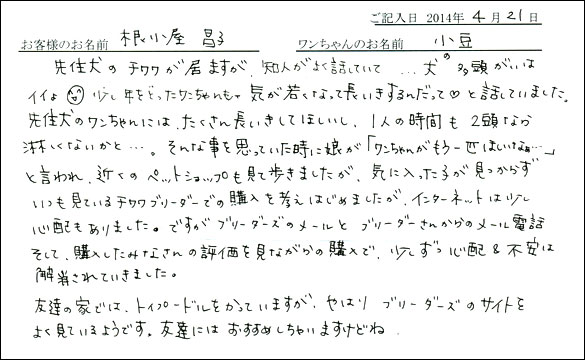 ご記入日 2014年 4月 21日
お客様のお名前 根小屋 昌子 ワンちゃんのお名前 小豆
先住犬のチワワが居ますが、知人がよく話していて…犬の多頭がいは
イイよ 少し年をとったワンちゃんも 気が若くなって長いきするんだって♡と話していました。
先住犬のワンちゃんには、たくさん長いきしてほしいし、1人の時間も2頭なら
淋しくないかと…。そんな事を思っていた時に娘が「ワンちゃんがもう一匹ほしいなぁ…」
と言われ、近くのペットショップも見て歩きましたが、気に入った子が見つからず
いつも見ているチワワブリーダーでの購入を考えはじめましたが、インターネットは少し
心配もありました。ですがブリーダーズのメールとブリーダーさんからのメール電話
そして、購入したみなさんの評価を見ながらの購入で、少しずつ心配&不安は
解消されていきました。
友達の家では、トイプードルをかっていますが、やはりブリーダーズのサイトを
よく見ているようです。友達にはおすすめしちゃいますけどね.